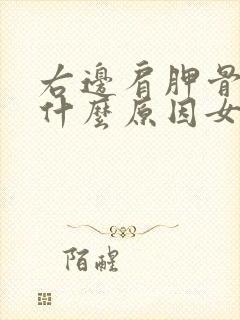 右邊肩胛骨
什麼原因女
陌醒